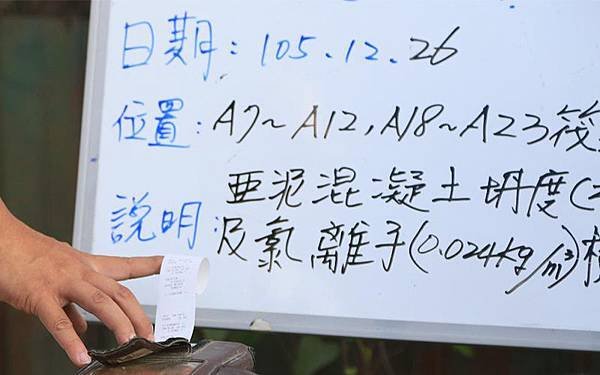 日期：105.12.26
位置：A7~A12,A18~A23筏
亜泥混凝土坍度(
説明：及氯離子(0.024kg/m³)檢